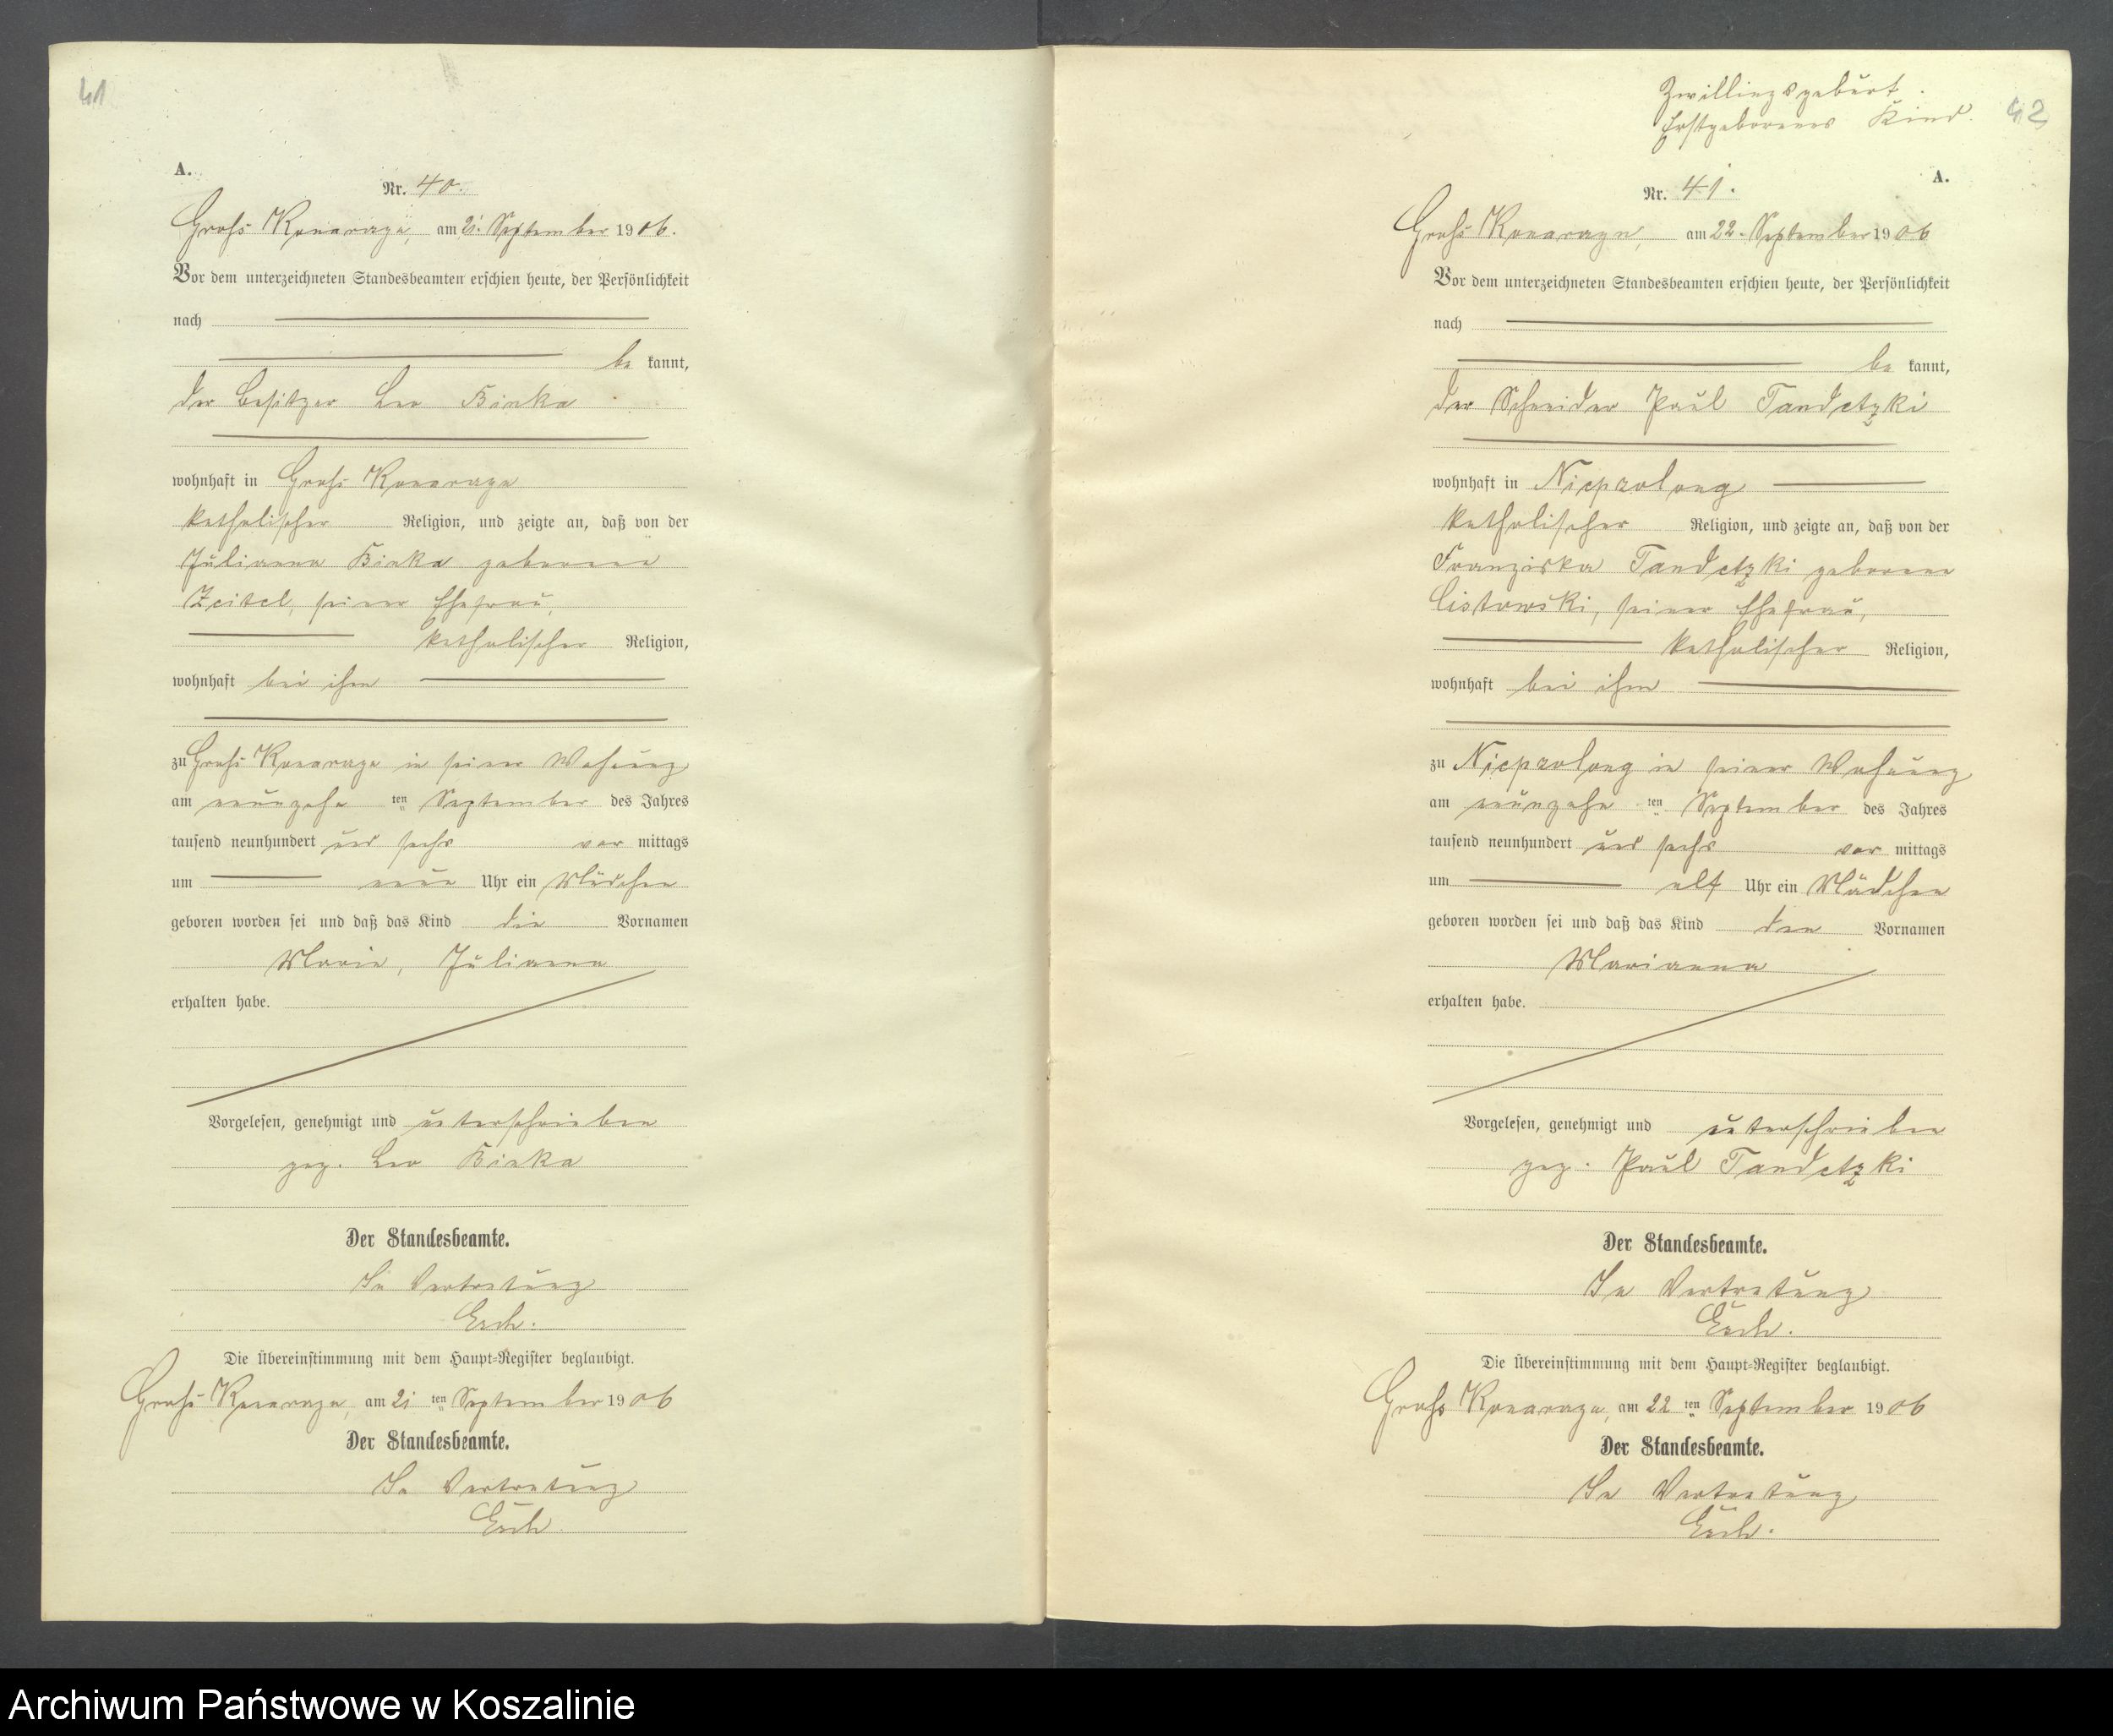 41
A.
Nr. 40.
Groß Konarzyn, am 21. September 1906.
Vor dem unterzeichneten Standesbeamten erschien heute, der Persönlichkeit
nach
be kannt,
der Besitzer Leo Binka
wohnhaft in Groß Konarzyn
katholischer Religion, und zeigte an, daß von der
Juliana Binka geborene
Zeitel, seiner Ehefrau,
katholischer Religion,
wohnhaft bei ihm
zu Groß Konarzyn in seiner Wohnung
am neunzehn ten September des Jahres
tausend neunhundert und sechs vor mittags
um neun Uhr ein Mädchen
geboren worden sei und daß das Kind die Vornamen
Marie, Juliana
erhalten habe.
Vorgelesen, genehmigt und unterschrieben
gez. Leo Binka
Der Standesbeamte.
In Vertretung
Die Übereinstimmung mit dem Haupt-Register beglaubigt.
Groß Konarzyn, am 21 ten September 1906
Der Standesbeamte.
In Vertretung
Zwillingsgeburt.
Erstgeborenes Kind.
42
A.
Nr. 41.
Groß Konarzyn, am 22. September 1906
Vor dem unterzeichneten Standesbeamten erschien heute, der Persönlichkeit
nach
be kannt,
der Schneider Paul Tandetzki
wohnhaft in Niepzolong
katholischer Religion, und zeigte an, daß von der
Franziska Tandetzki geborene
Cistowski, seiner Ehefrau,
katholischer Religion,
wohnhaft bei ihm
zu Niepzolong in seiner Wohnung
am neunzehn ten September des Jahres
tausend neunhundert und sechs vor mittags
um elf Uhr ein Mädchen
geboren worden sei und daß das Kind den Vornamen
Marianna
erhalten habe.
Vorgelesen, genehmigt und unterschrieben
gez. Paul Tandetzki
Der Standesbeamte.
In Vertretung
Die Übereinstimmung mit dem Haupt-Register beglaubigt.
Groß Konarzyn, am 22 ten September 1906
Der Standesbeamte.
In Vertretung
Archiwum Państwowe w Koszalinie